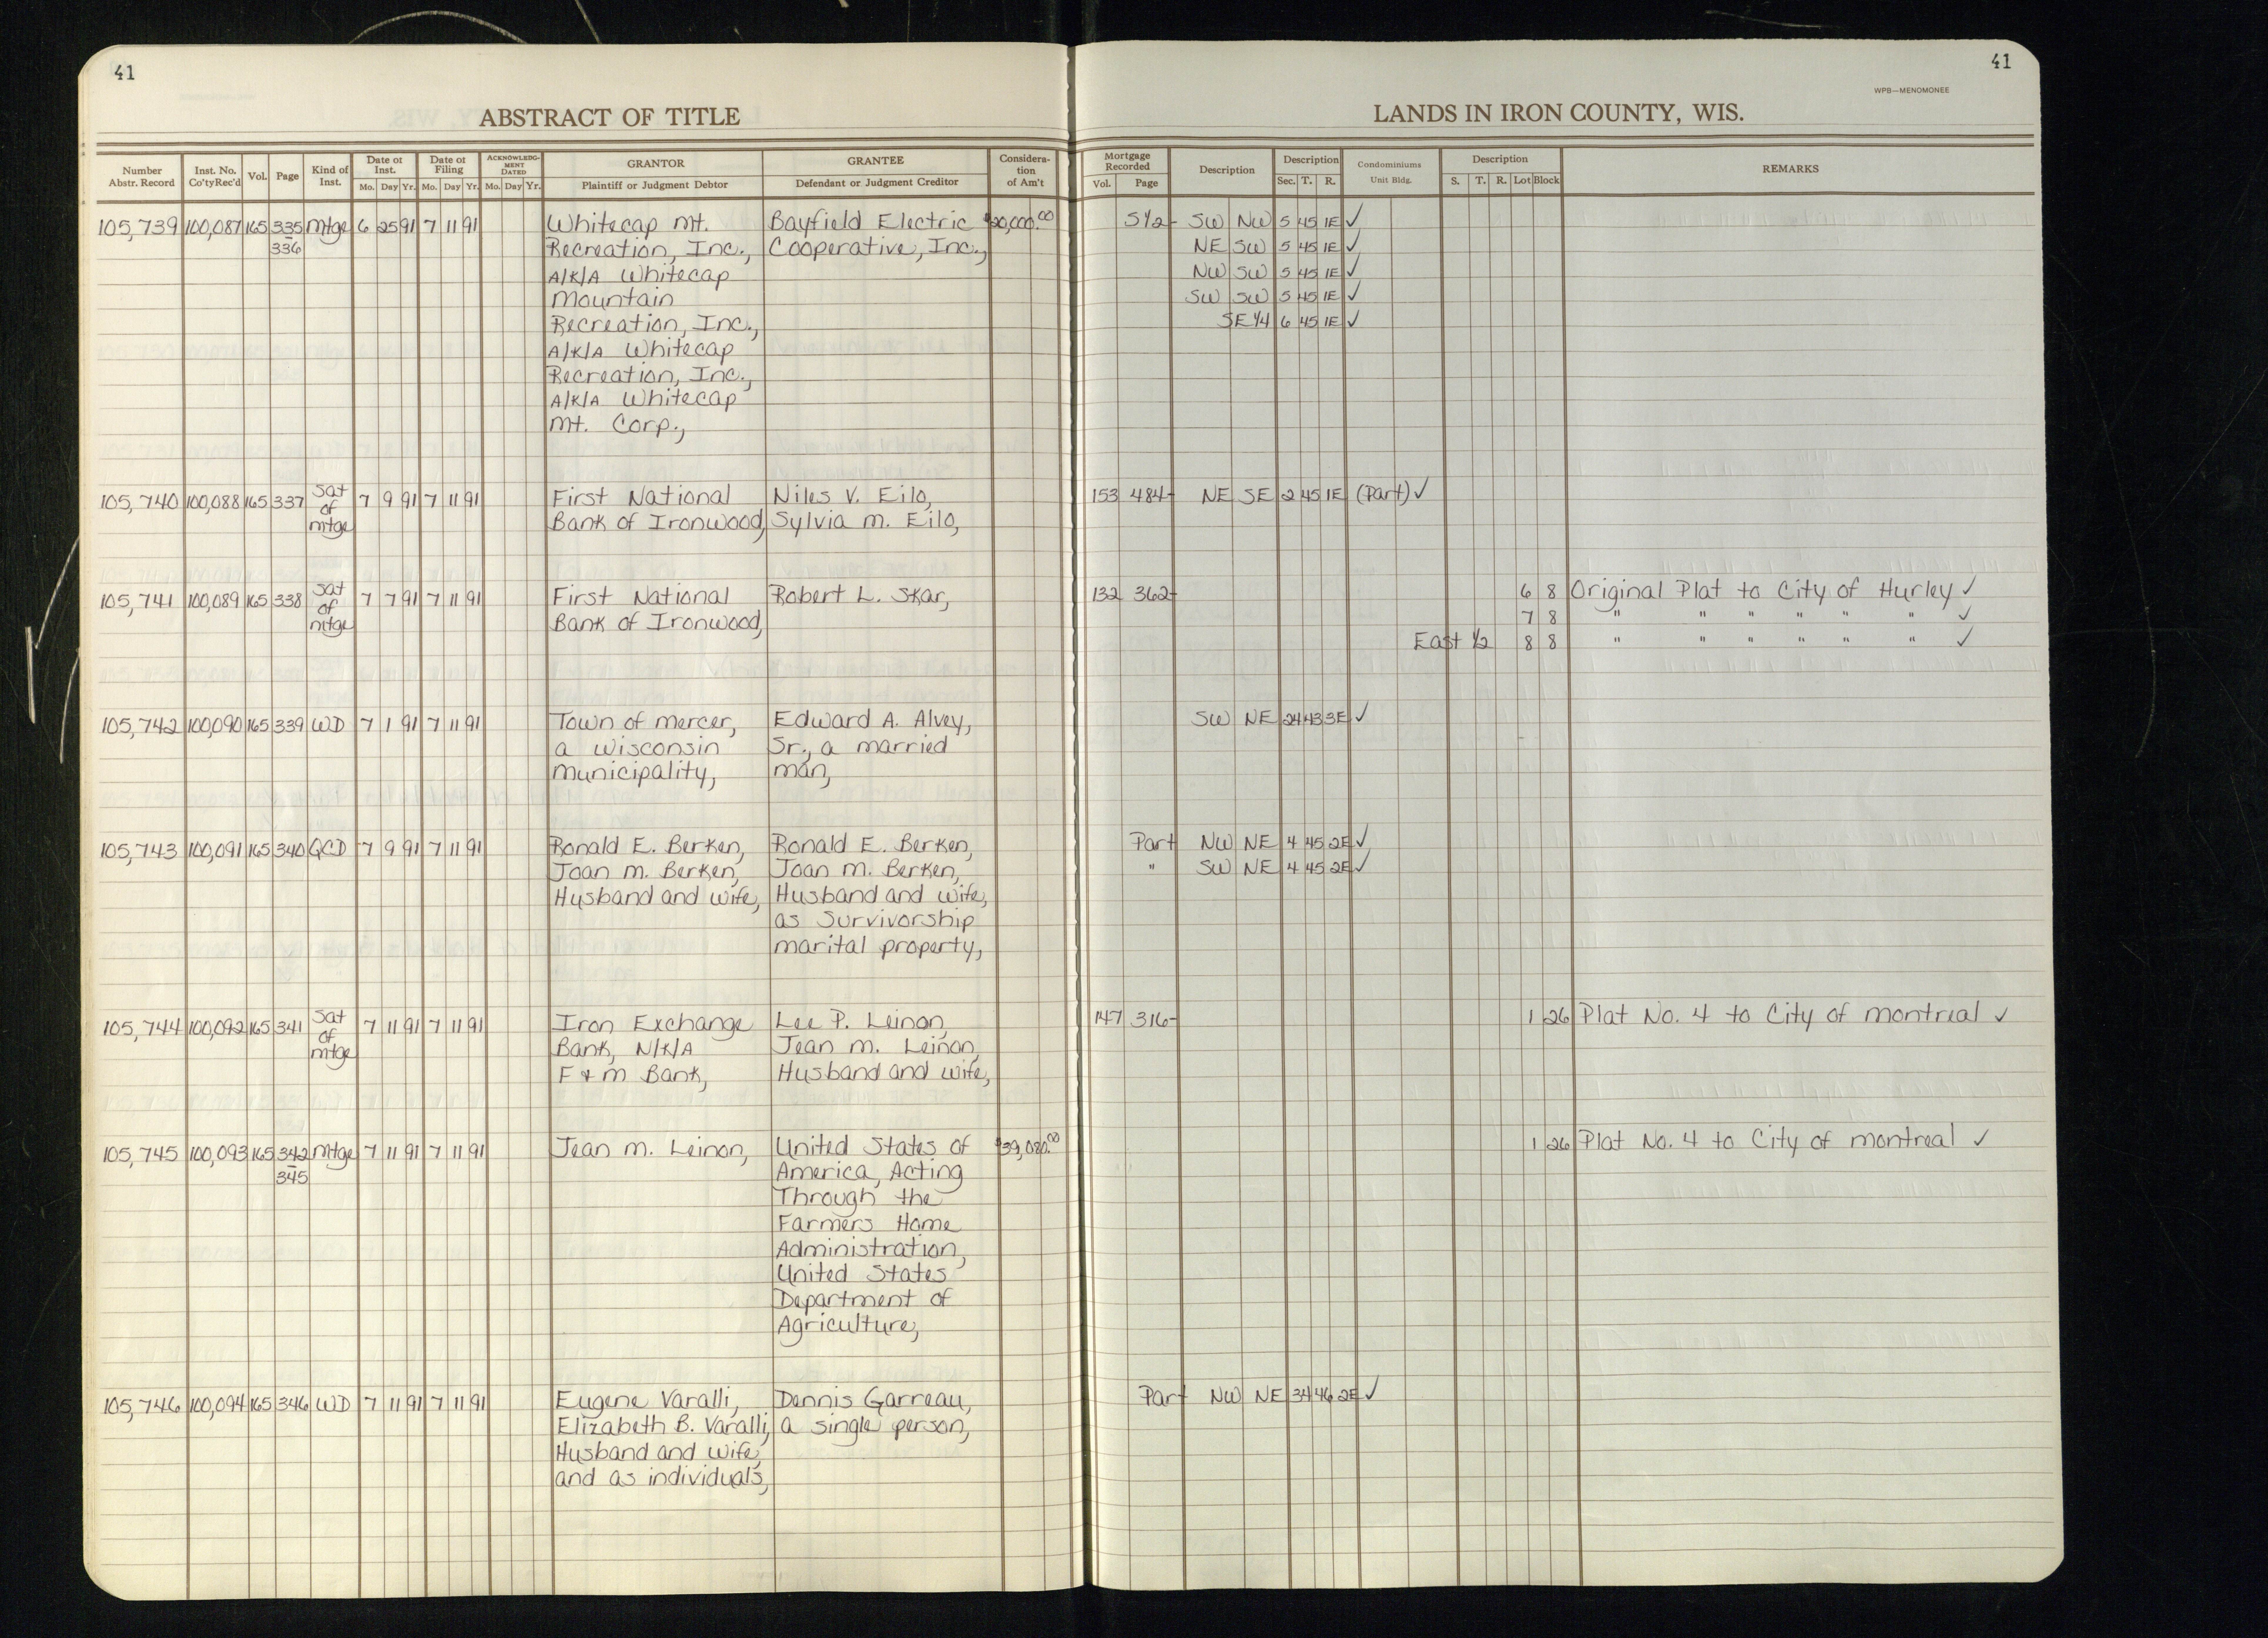 41
41
WPB—MENOMONEE
ABSTRACT OF TITLE
LANDS IN IRON COUNTY, WIS.
Number Abstr. Record | Inst. No. Co'tyRec'd | Vol. | Page | Kind of Inst. | Date of Inst. Mo. Day Yr. | Date of Filing Mo. Day Yr. | ACKNOWLEDG-MENT DATED Mo. Day Yr. | GRANTOR Plaintiff or Judgment Debtor | GRANTEE Defendant or Judgment Creditor | Considera-tion of Am't | Mortgage Recorded Vol. Page | Description | Description Sec. T. R. | Condominiums Unit Bldg. | Description S. T. R. Lot Block | REMARKS
105,739 100,087 165 335 Mtge 6 25 91 7 11 91 Whitecap Mt. Bayfield Electric $20,000.00 S1/2- SW NW 5 45 1E ✓
336 Recreation, Inc., Cooperative, Inc., NE SW 5 45 1E ✓
A/K/A Whitecap NW SW 5 45 1E ✓
Mountain SW SW 5 45 1E ✓
Recreation, Inc., SE 1/4 6 45 1E ✓
A/K/A Whitecap
Recreation, Inc.,
A/K/A Whitecap
Mt. Corp.,
105,740 100,088 165 337 Sat of Mtge 7 9 91 7 11 91 First National Niles V. Eilo, 153 484- NE SE 2 45 1E (Part) ✓
Bank of Ironwood, Sylvia M. Eilo,
105,741 100,089 165 338 Sat of Mtge 7 7 91 7 11 91 First National Robert L. Skar, 132 362- 6 8 Original Plat to City of Hurley ✓
Bank of Ironwood, 7 8 " " " " " " ✓
East 1/2 8 8 " " " " " " ✓
105,742 100,090 165 339 WD 7 1 91 7 11 91 Town of Mercer, Edward A. Alvey, SW NE 24 43 3E ✓
a Wisconsin Sr., a married
Municipality, man,
105,743 100,091 165 340 QCD 7 9 91 7 11 91 Ronald E. Berken, Ronald E. Berken, Part NW NE 4 45 2E ✓
Joan M. Berken, Joan M. Berken, " SW NE 4 45 2E ✓
Husband and wife, Husband and wife,
as survivorship
marital property,
105,744 100,092 165 341 Sat of Mtge 7 11 91 7 11 91 Iron Exchange Lee P. Leinon, 147 316- 1 26 Plat No. 4 to City of Montreal ✓
Bank, N/K/A Jean M. Leinon,
F & M Bank, Husband and wife,
105,745 100,093 165 342 Mtge 7 11 91 7 11 91 Jean M. Leinon, United States of $39,080.00 1 26 Plat No. 4 to City of Montreal ✓
345 America, Acting
Through the
Farmers Home
Administration,
United States
Department of
Agriculture,
105,746 100,094 165 346 WD 7 11 91 7 11 91 Eugene Varalli, Dennis Garreau, Part NW NE 34 46 2E ✓
Elizabeth B. Varalli, a single person,
Husband and Wife,
and as individuals,